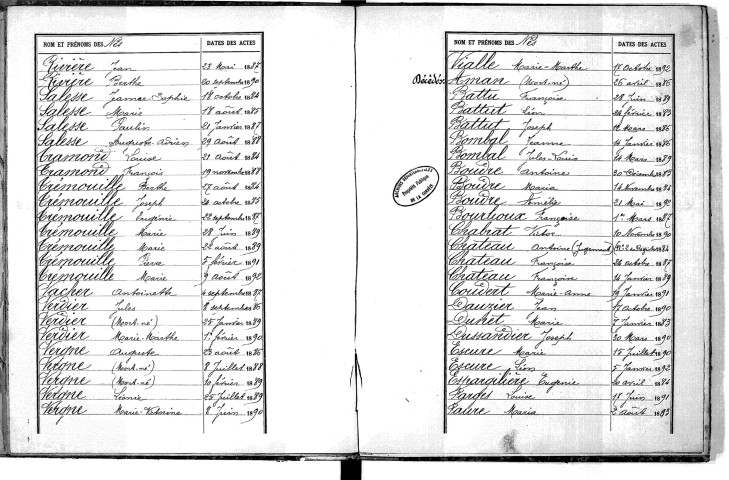 NOM ET PRÉNOMS DES Nés DATES DES ACTES
Rivière Jean 23 Mai 1887
Rivière Berthe 20 septembre 1890
Salesse Jeanne-Sophie 18 octobre 1884
Salesse Marie 18 août 1885
Salesse Paulin 21 Janvier 1887
Salesse Auguste-Adrien 29 août 1888
Tramond Louise 21 août 1884
Tramond François 19 novembre 1888
Trémouille Berthe 17 août 1884
Trémouille Joseph 20 octobre 1885
Trémouille Eugénie 22 septembre 1887
Trémouille Marie 28 Juin 1889
Trémouille Marie 22 août 1889
Trémouille Pierre 5 février 1891
Trémouille Marie 9 août 1892
Vacher Antoinette 4 septembre 1887
Verdier Jules 8 septembre 1886
Verdier (Mort-né) 25 Janvier 1889
Verdier Marie-Marthe 1er février 1890
Vergne Auguste 23 août 1886
Vergne (Mort-né) 8 Juillet 1888
Vergne (Mort-né) 10 février 1889
Vergne Léonie 25 Juillet 1889
Vergne Marie-Victorine 8 Juin 1890
NOM ET PRÉNOMS DES Nés DATES DES ACTES
Vialle Marie-Marthe 17 Octobre 1892
Décédés: Aman (Mort-né) 26 avril 1886
Battu Françoise 28 Juin 1889
Battut Léon 24 février 1883
Battut Joseph 12 Mars 1886
Bombal Jeanne 14 Janvier 1886
Bombal Jules-Louis 14 Mars 1889
Boudre Antoine 30 Décembre 1883
Boudre Maria 14 Novembre 1884
Boudre Noméli 21 Mai 1892
Bourlioux Françoise 1er Mars 1887
Chabrat Victor 10 Novembre 1890
Château Antoine (Jugement) 1884
Château Françoise 26 octobre 1887
Château Françoise 14 Janvier 1889
Coudert Marie-Anne 19 Janvier 1891
Dauzier Jean 17 octobre 1890
Marie 7 Janvier 1883
Dussandier Joseph 30 Mars 1890
Escure Marie 15 Juillet 1890
Escure Léon 5 Janvier 1892
Estrargilière Eugénie 20 avril 1884
Farges Louise 18 Juin 1891
Faure Maria 2 août 1883
ARCHIVES DÉPARTEMENTALES
Propriété Publique
DE LA CORRÈZE